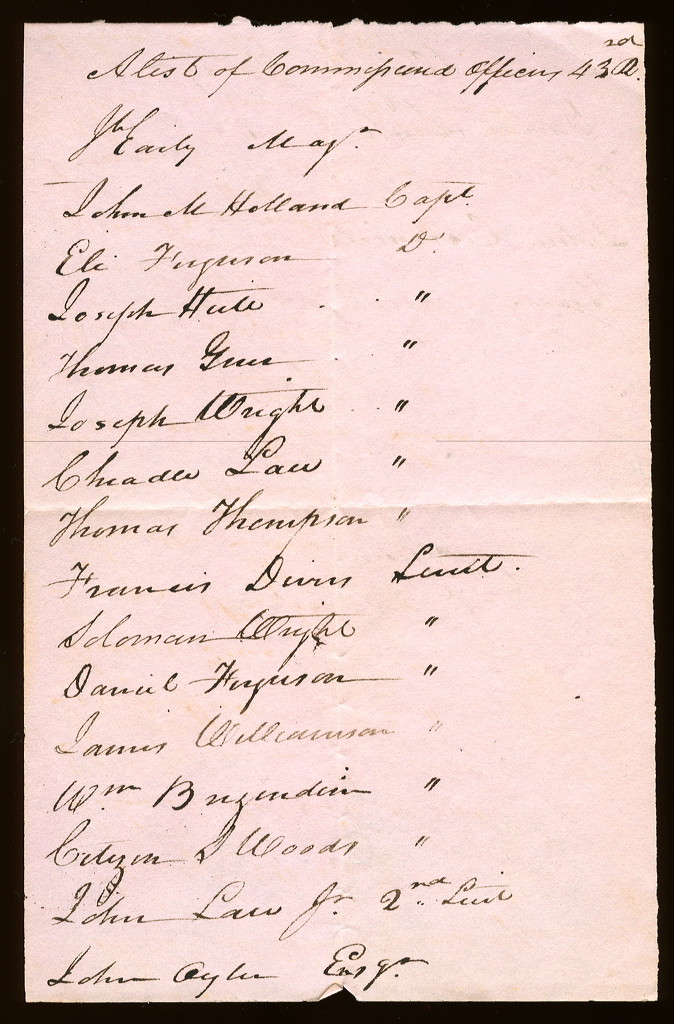 A list of Commissioned Officers 43rd R.
Early Majr
John M Holland Capt.
Eli Ferguson D.
Joseph Hill "
Thomas Greer "
Joseph Wright "
Law "
Thomas Thompson "
Francis Divers Lieut.
Solomon Wright "
Daniel Ferguson "
James Williamson "
Wm Brizendine "
Citizen S Woods "
John Law Jr 2nd Lieut
John Oyler Ensgr